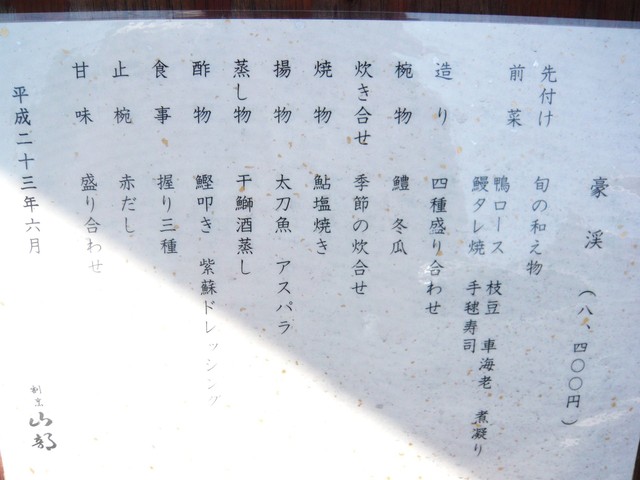 豪渓 (八、四〇〇円)
先付け 旬の和え物
前菜 鴨ロース 枝豆 車海老 煮凝り
鰻タレ焼 手毬寿司
造り 四種盛り合わせ
椀物 鱧 冬瓜
炊き合せ 季節の炊合せ
焼物 鮎塩焼き
揚物 太刀魚 アスパラ
蒸し物 干鰤酒蒸し
酢物 鰹叩き 紫蘇ドレッシング
食事 握り三種
止椀 赤だし
甘味 盛り合わせ
平成二十三年六月
割烹 山部